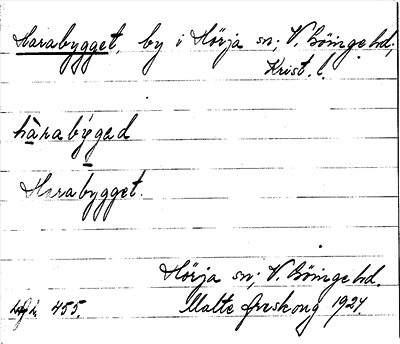 Harabygget, by i Hörja sn; V. Göinge hd;
Krist. l.
hàrabýgad
Harabygget.
Hörja sn; V. Göinge hd.
455. Malte Areskoug 1924.